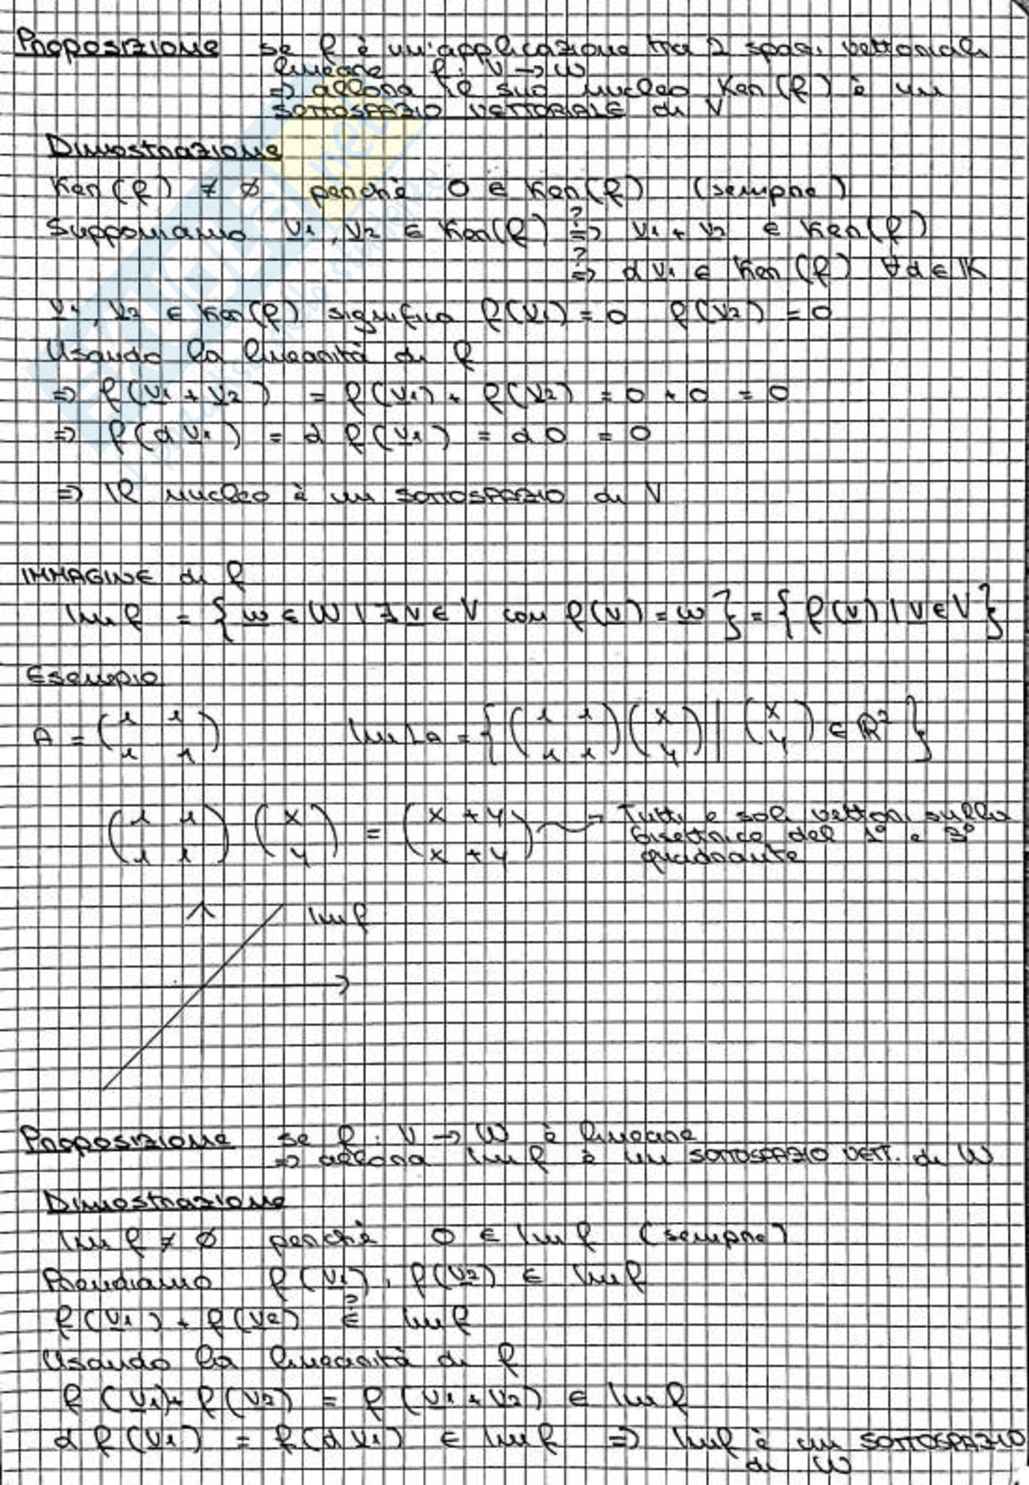 Proposizione se f è un'applicazione tra 2 spazi vettoriali
lineare f: V → W
⇒ allora il suo nucleo Ker(f) è un
SOTTOSPAZIO VETTORIALE di V
Dimostrazione
Ker(f) ≠ ∅ perché 0 ∈ Ker(f) (sempre)
Supponiamo v1, v2 ∈ Ker(f) ?⇒ v1 + v2 ∈ Ker(f)
?⇒ αv1 ∈ Ker(f) ∀α∈K
v1, v2 ∈ Ker(f) significa f(v1) = 0 f(v2) = 0
Usando la linearità di f
⇒ f(v1 + v2) = f(v1) + f(v2) = 0 + 0 = 0
⇒ f(αv1) = α f(v1) = α0 = 0
⇒ Il nucleo è un SOTTOSPAZIO di V
IMMAGINE di f
Im f = {w ∈ W | ∃ v ∈ V con f(v) = w} = {f(v) | v ∈ V}
Esempio
A = (1 1 / 1 1) Im LA = {(1 1 / 1 1)(x / y) | (x / y) ∈ R²}
(1 1 / 1 1)(x / y) = (x + y / x + y) → Tutti e soli vettori sulla
bisettrice del 1° e 3°
quadrante
Im f
Proposizione se f: V → W è lineare
⇒ allora Im f è un SOTTOSPAZIO VETT. di W
Dimostrazione
Im f ≠ ∅ perché 0 ∈ Im f (sempre)
Prendiamo f(v1), f(v2) ∈ Im f
f(v1) + f(v2) ?∈ Im f
Usando la linearità di f
f(v1) + f(v2) = f(v1 + v2) ∈ Im f
α f(v1) = f(αv1) ∈ Im f ⇒ Im f è un SOTTOSPAZIO
di W